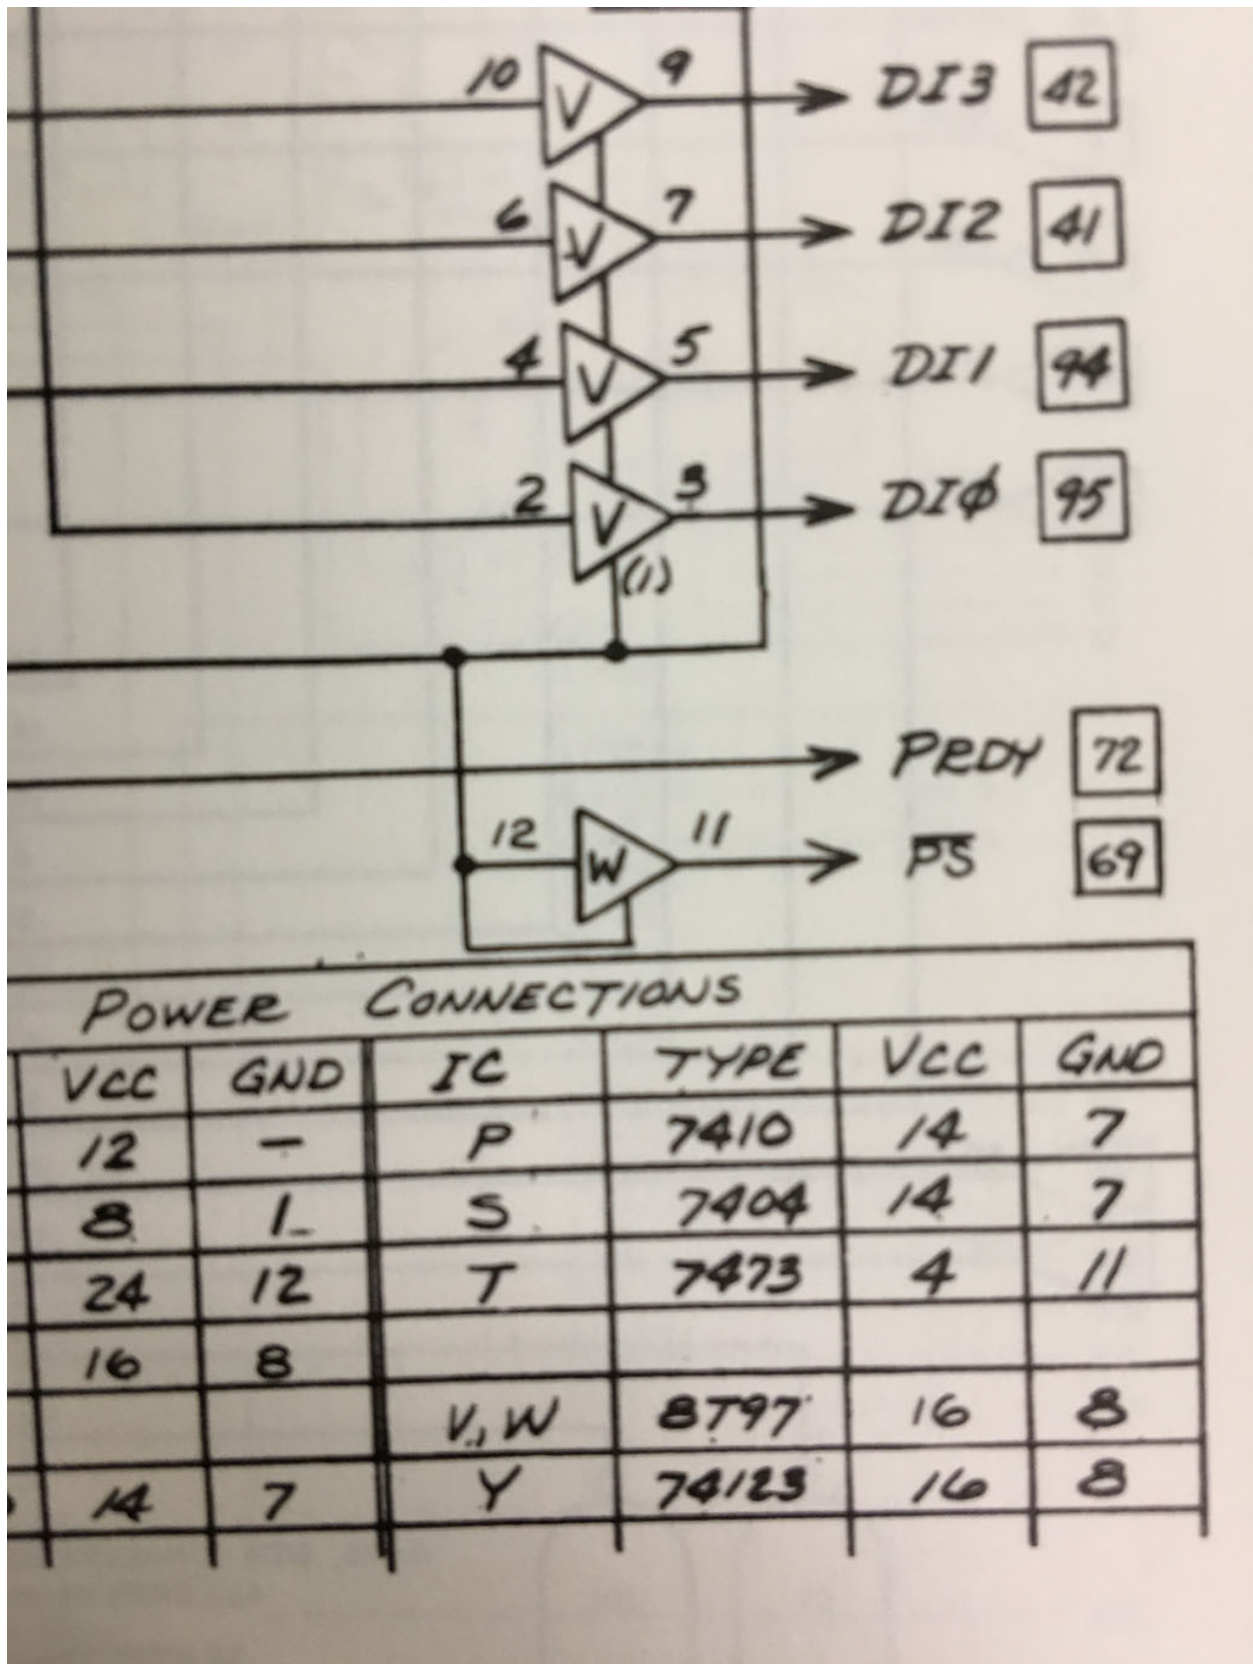 10 V 9 DI3 42
6 V 7 DI2 41
4 V 5 DI1 94
2 V 3 DIØ 95
(1)
PRDY 72
12 W 11 P̅S̅ 69
POWER CONNECTIONS
VCC GND IC TYPE VCC GND
12 — P 7410 14 7
8 1 S 7404 14 7
24 12 T 7473 4 11
16 8
V, W 8T97 16 8
14 7 Y 74123 16 8